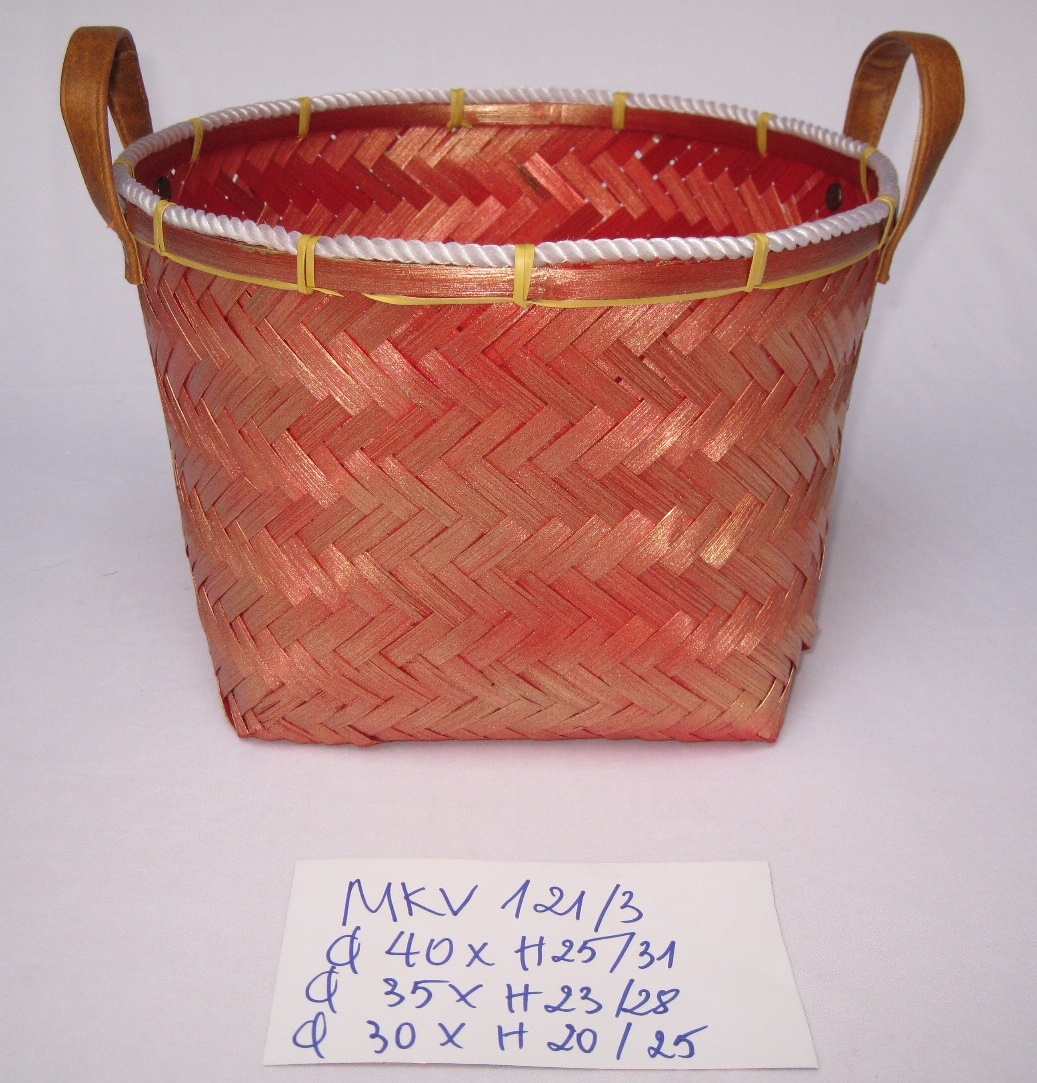 MKV 121/3
φ 40 x H25/31
φ 35 x H23/28
φ 30 x H 20/25